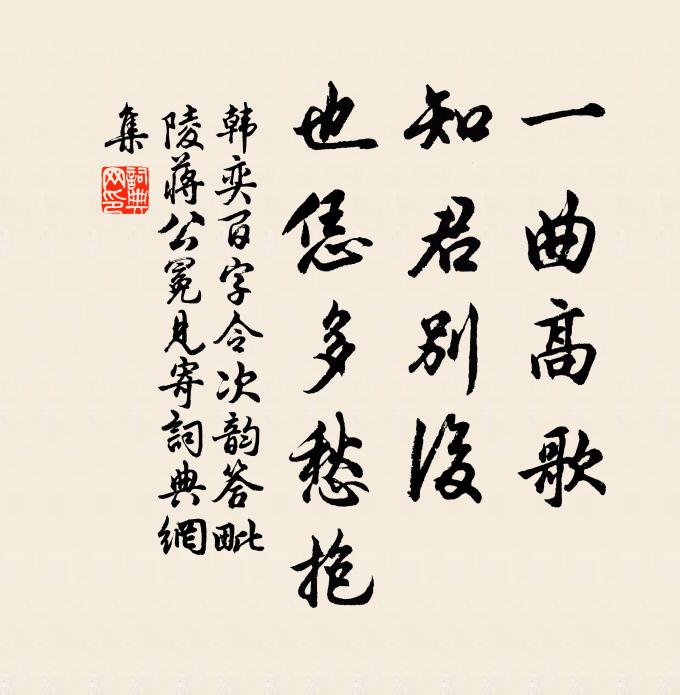 一曲高歌
知君别後
也恁多愁抱
韩奕百字令次韵答毗
陵蒋公冕见寄詞典網
集
詞典
网印